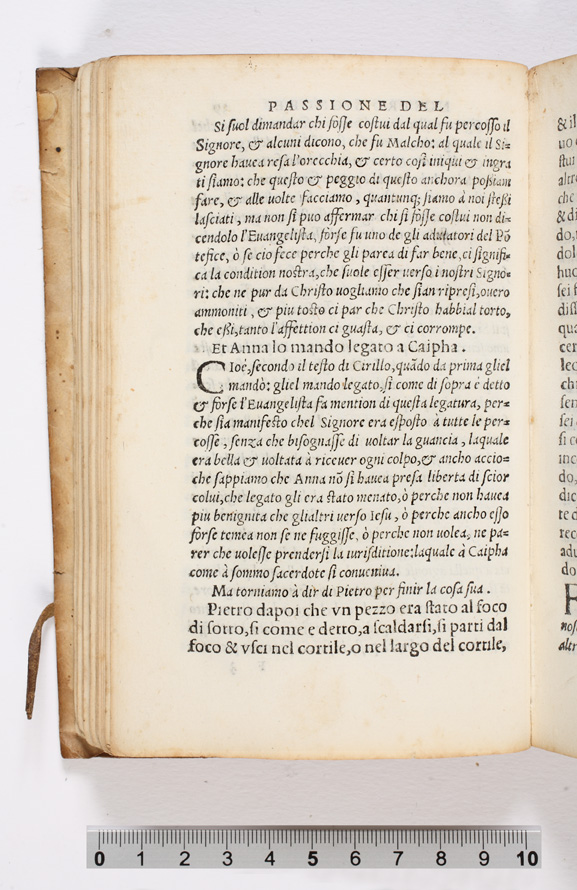 PASSIONE DEL
Si ſuol dimandar chi fóſſe coſtui dal qual fu percoſſo il
Signore, & alcuni dicono, che fu Malcho: al quale il Si-
gnore hauea reſa l'orecchia, & certo coſi iniqui & ingra
ti ſiamo: che queſto & peggio di queſto anchora poßiam
fare, & alle uolte facciamo, quantunq; ſiamo à noi ſteßi
laſciati, ma non ſi puo affermar chi ſi fóſſe coſtui non di-
cendolo l'Euangeliſta, fórſe fu uno de gli adulatori del Põ
tefice, ò ſe cio fece perche gli parea di far bene, ci ſignifi-
ca la condition noſtra, che ſuole eſſer uerſo i noſtri Signo-
ri: che ne pur da Chriſto uogliamo che ſian ripreſi, ouero
ammoniti, & piu toſto ci par che Chriſto habbial torto,
che eßi, tanto l'affettion ci guaſta, & ci corrompe.
Et Anna lo mando legato a Caipha.
CIoé, ſecondo il teſto di Cirillo, quãdo da prima gliel
mandò: gliel mando legato, ſi come di ſopra é detto
& fórſe l'Euangeliſta fa mention di queſta legatura, per-
che ſia manifeſto chel Signore era eſpoſto à tutte le per-
coſſe, ſenza che biſognaſſe di uoltar la guancia, laquale
era bella & uoltata à riceuer ogni colpo, & ancho accio-
che ſappiamo che Anna nõ ſi hauea preſa liberta di ſcior
colui, che legato gli era ſtato menato, ò perche non hauea
piu benignita che glialtri uerſo Ieſu, ò perche ancho eſſo
fórſe temea non ſe ne fuggiſſe, ò perche non uolea, ne pa-
rer che uoleſſe prenderſi la iuriſditione: laquale à Caipha
come à ſommo ſacerdote ſi conueniua.
Ma torniamo à dir di Pietro per finir la coſa ſua.
Pietro dapoi che vn pezzo era ſtato al foco
di ſotto, ſi come e detto, a ſcaldarſi, ſi parti dal
foco & vſci nel cortile, o nel largo del cortile,
0 1 2 3 4 5 6 7 8 9 10